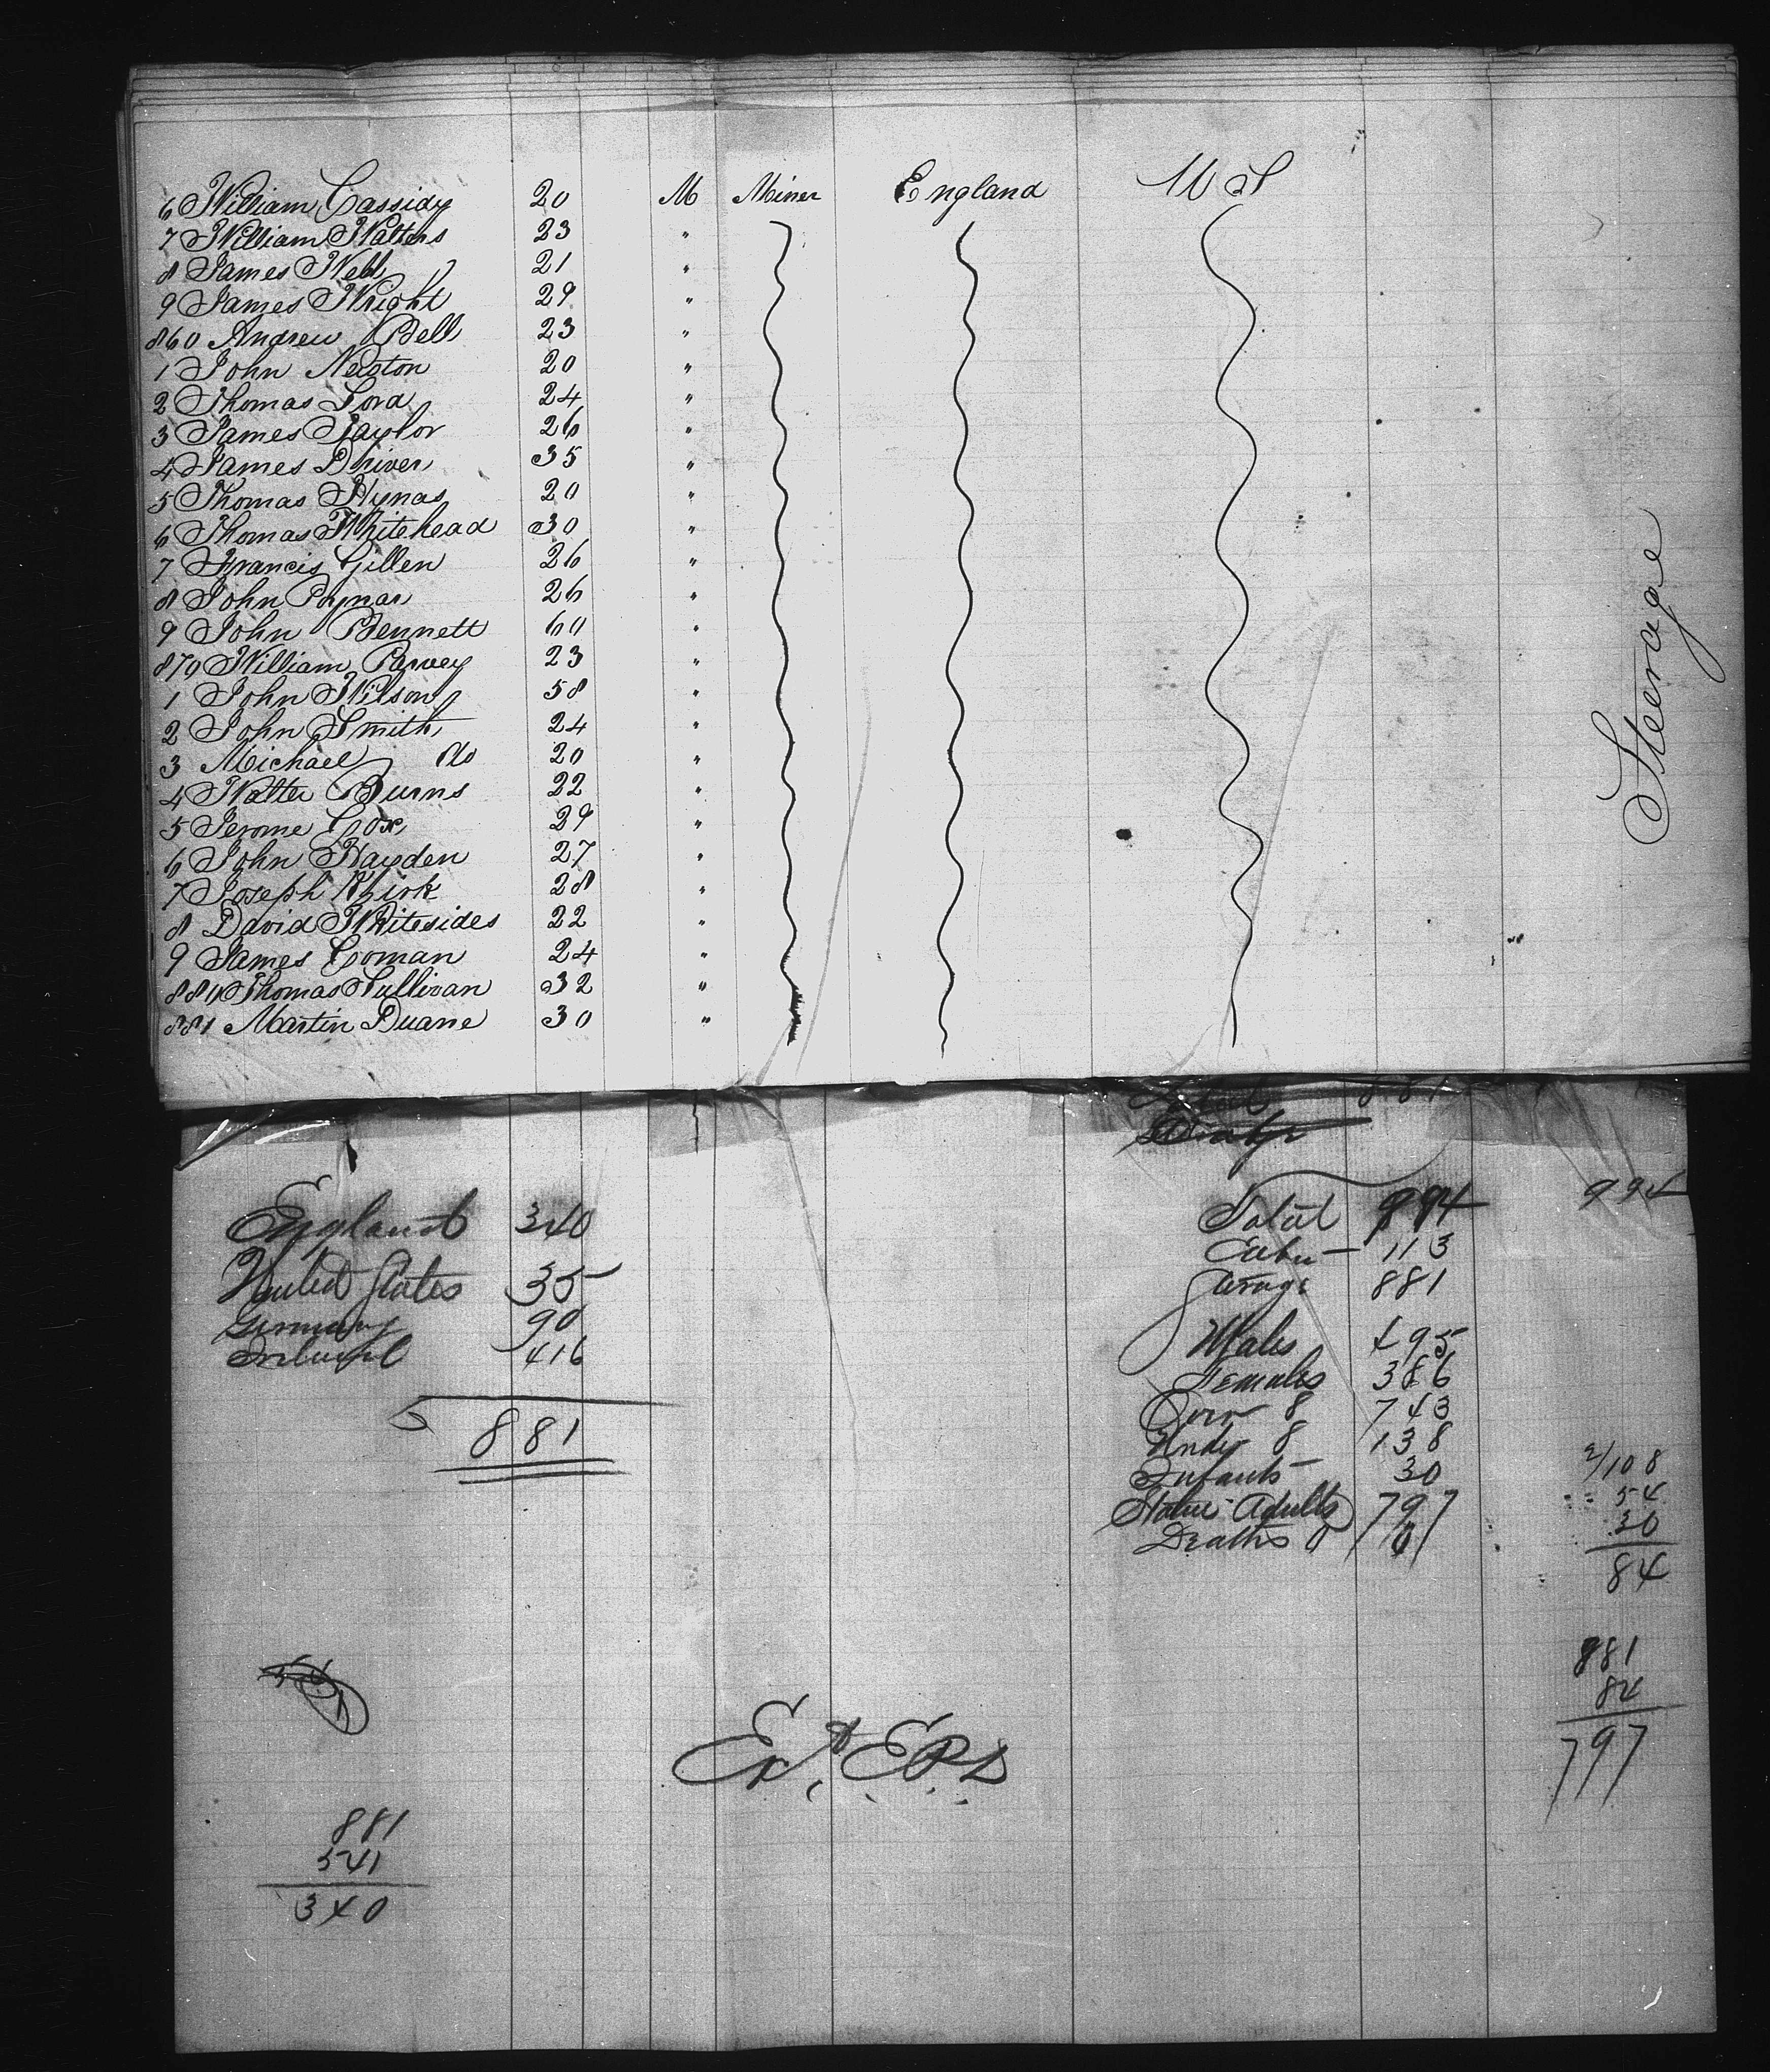 6 William Cassidy 20 M Miner England U S
7 William Walters 23 "
8 James Webb 21 "
9 James Wright 29 "
860 Andrew Bell 23 "
1 John Newton 20 "
2 Thomas Lord 24 "
3 James Taylor 26 "
4 James Driver 35 "
5 Thomas Hynas 20 "
6 Thomas Whitehead 30 "
7 Francis Gillen 26 "
8 John 26 "
9 John Bennett 60 "
870 William Parvey 23 "
1 John Wilson 58 "
2 John Smith 24 "
3 Michael Do 20 "
4 Walter Burns 22 "
5 Jerome Cox 29 "
6 John Hayden 27 "
7 Joseph Kirk 28 "
8 David Whitesides 22 "
9 James Coman 24 "
880 Thomas Sullivan 32 "
881 Martin Duane 30 "
Steerage
Total 881
Deaths
England 340
United States 35
Germany 90
Ireland 416
881
Total 994 994
Cabin 113
Steerage 881
Males 495
Females 386
Over 8 743
Under 8 138
Infants 30
Statue Adults 797
Deaths 0
2/108
54
30
84
881
84
797
Exd E.R.D.
881
541
340